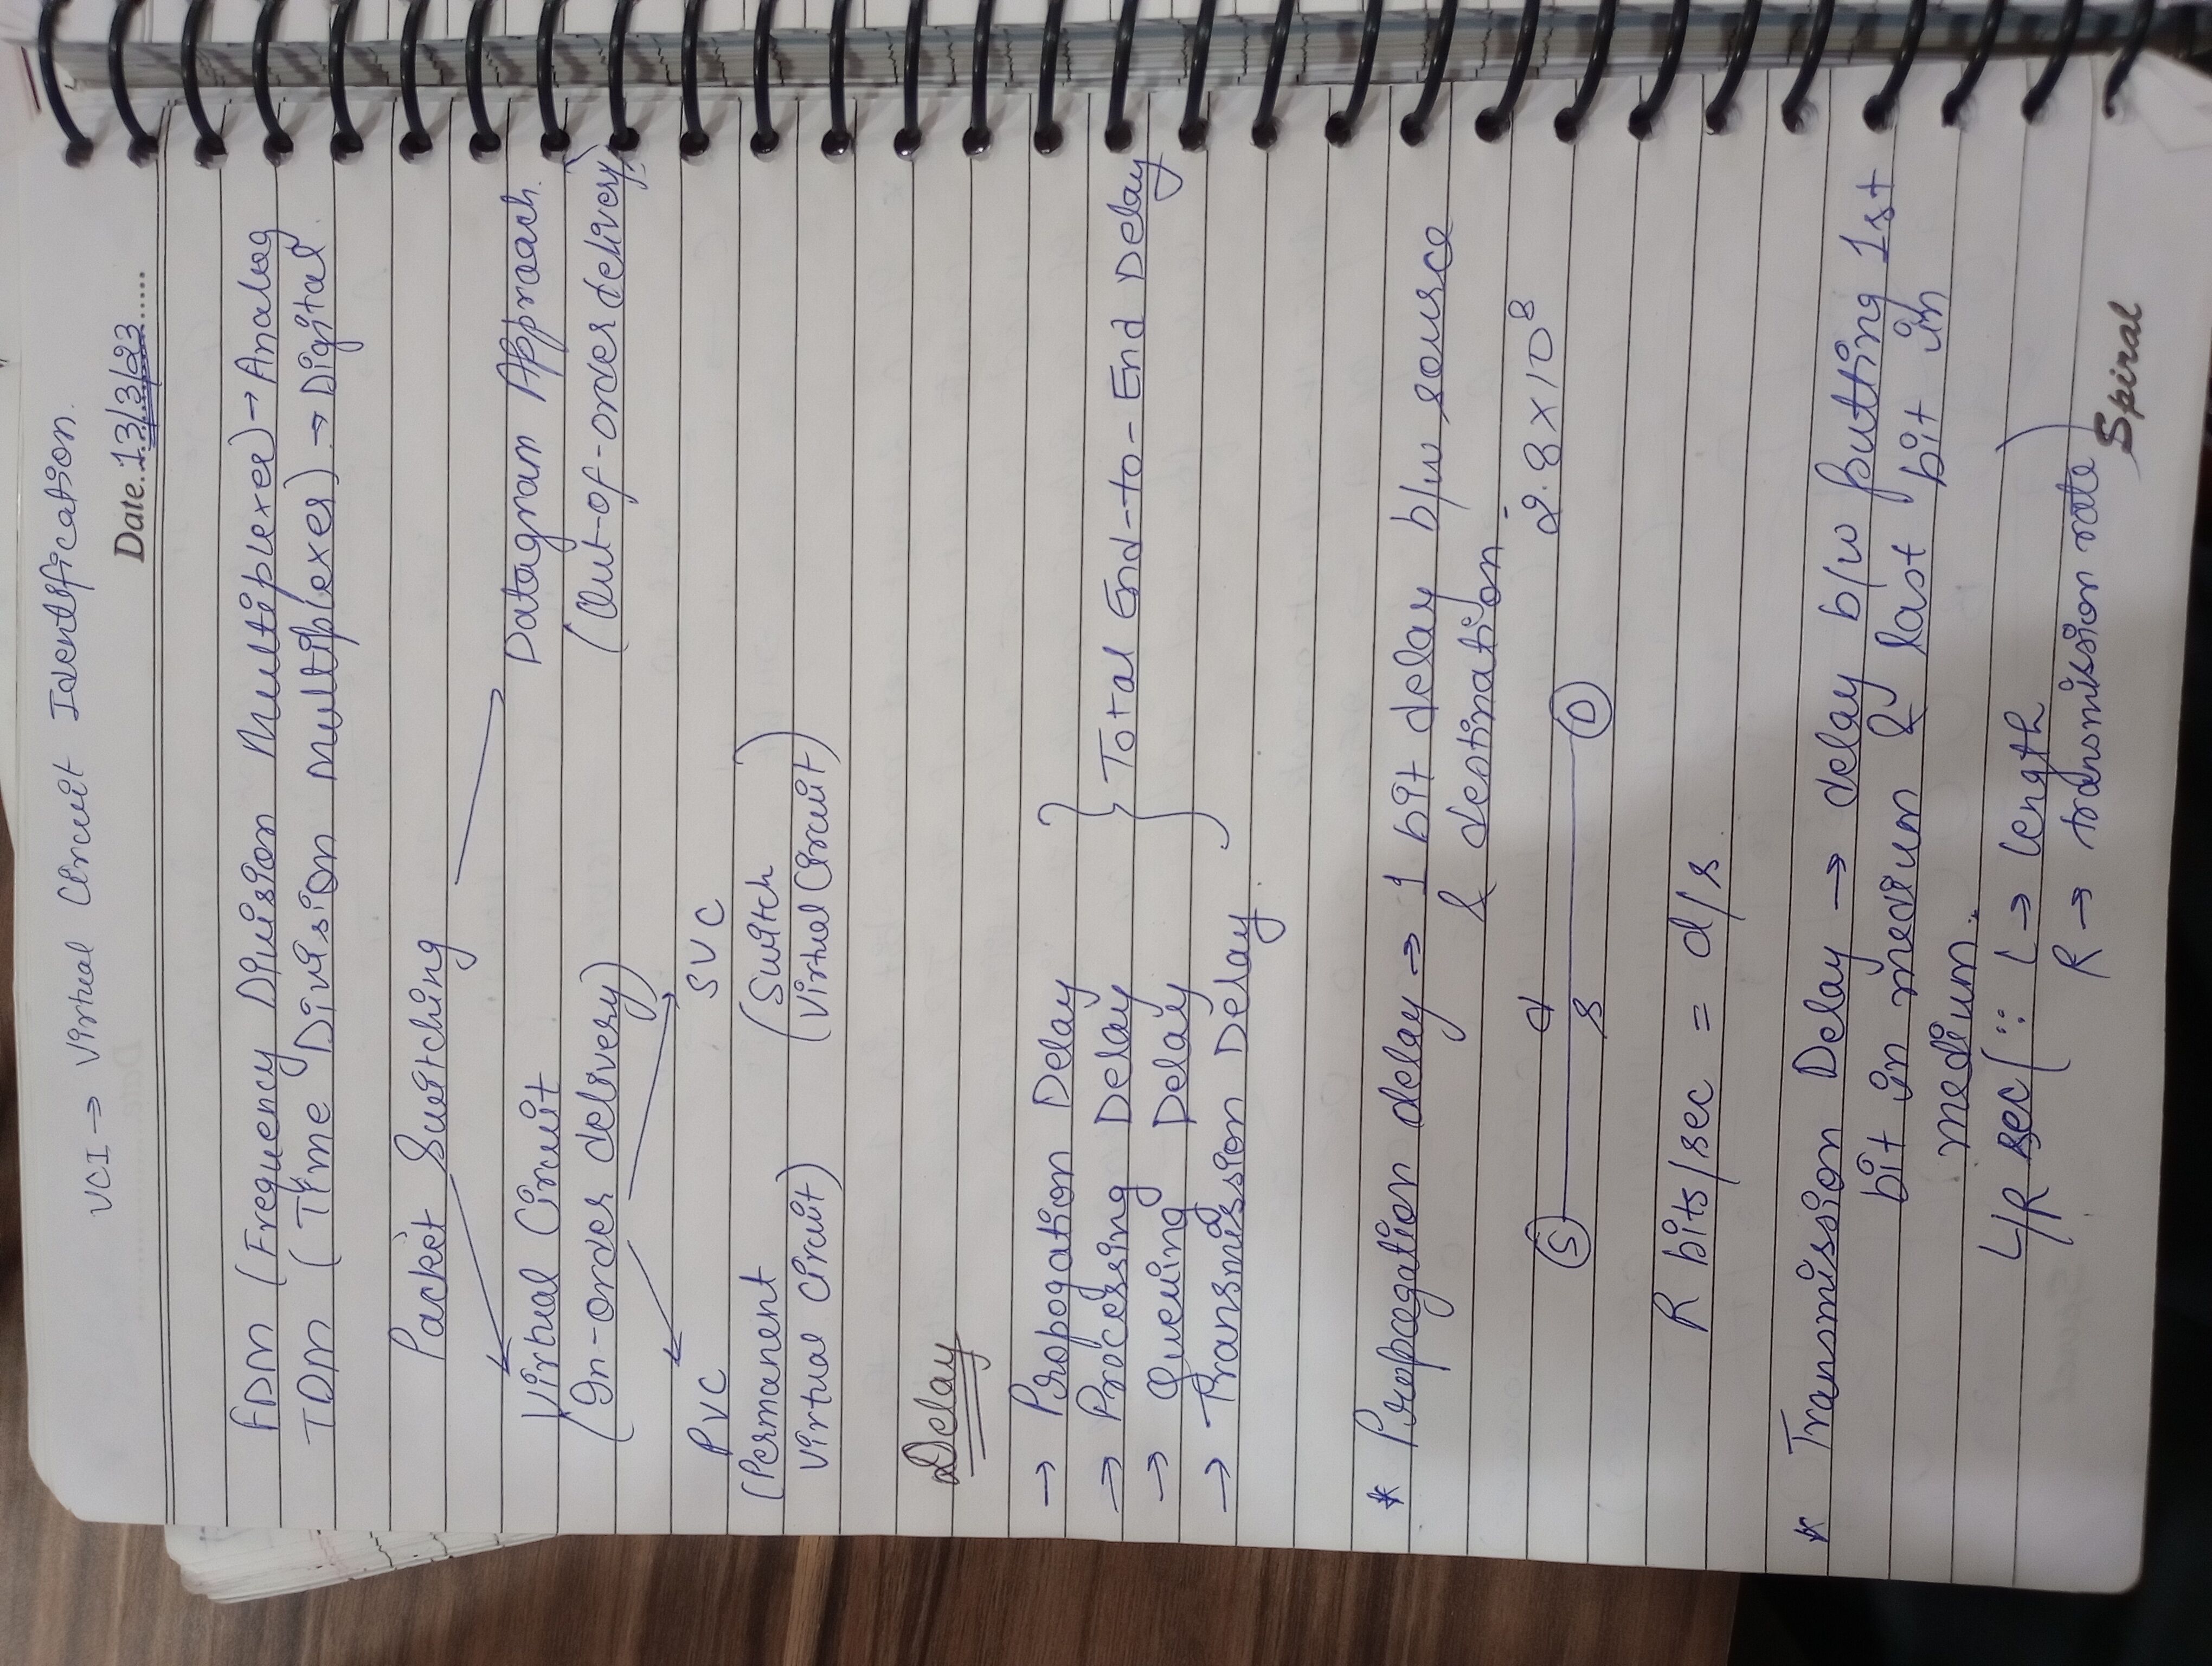 VCI → Virtual Circuit Identification.
Date..13/3/23......
FDM (Frequency Division Multiplexer) → Analog
TDM (Time Division Multiplexer) → Digital
Packet Switching
Virtual Circuit Datagram Approach.
(In-order delivery) (Out-of-order delivery)
PVC SVC
(Permanent (Switch)
Virtual Circuit) (Virtual Circuit)
Delay
→ Propogation Delay
→ Processing Delay } Total End-to-End Delay
→ Queuing Delay
→ Transmission Delay.
* Propagation delay → 1 bit delay b/w source
& destination
d 2.8 × 10⁸
(S) s (D)
R bits/sec = d/s
* Transmission Delay → delay b/w putting 1st
bit in medium & last bit in
medium.
L/R sec (∵ L → length
R → transmission rate)
Spiral